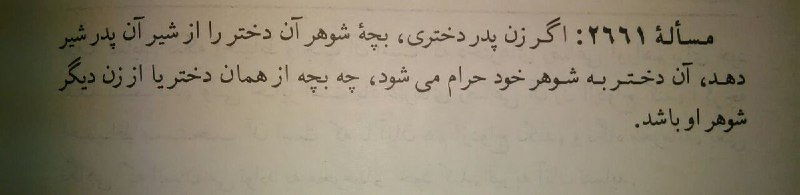 مسألهٔ ۲۶۶۱: اگر زن پدر دختری، بچهٔ شوهر آن دختر را از شیر آن پدر شیر
دهد، آن دختر به شوهر خود حرام می شود، چه بچه از همان دختر یا از زن دیگر
شوهر او باشد.